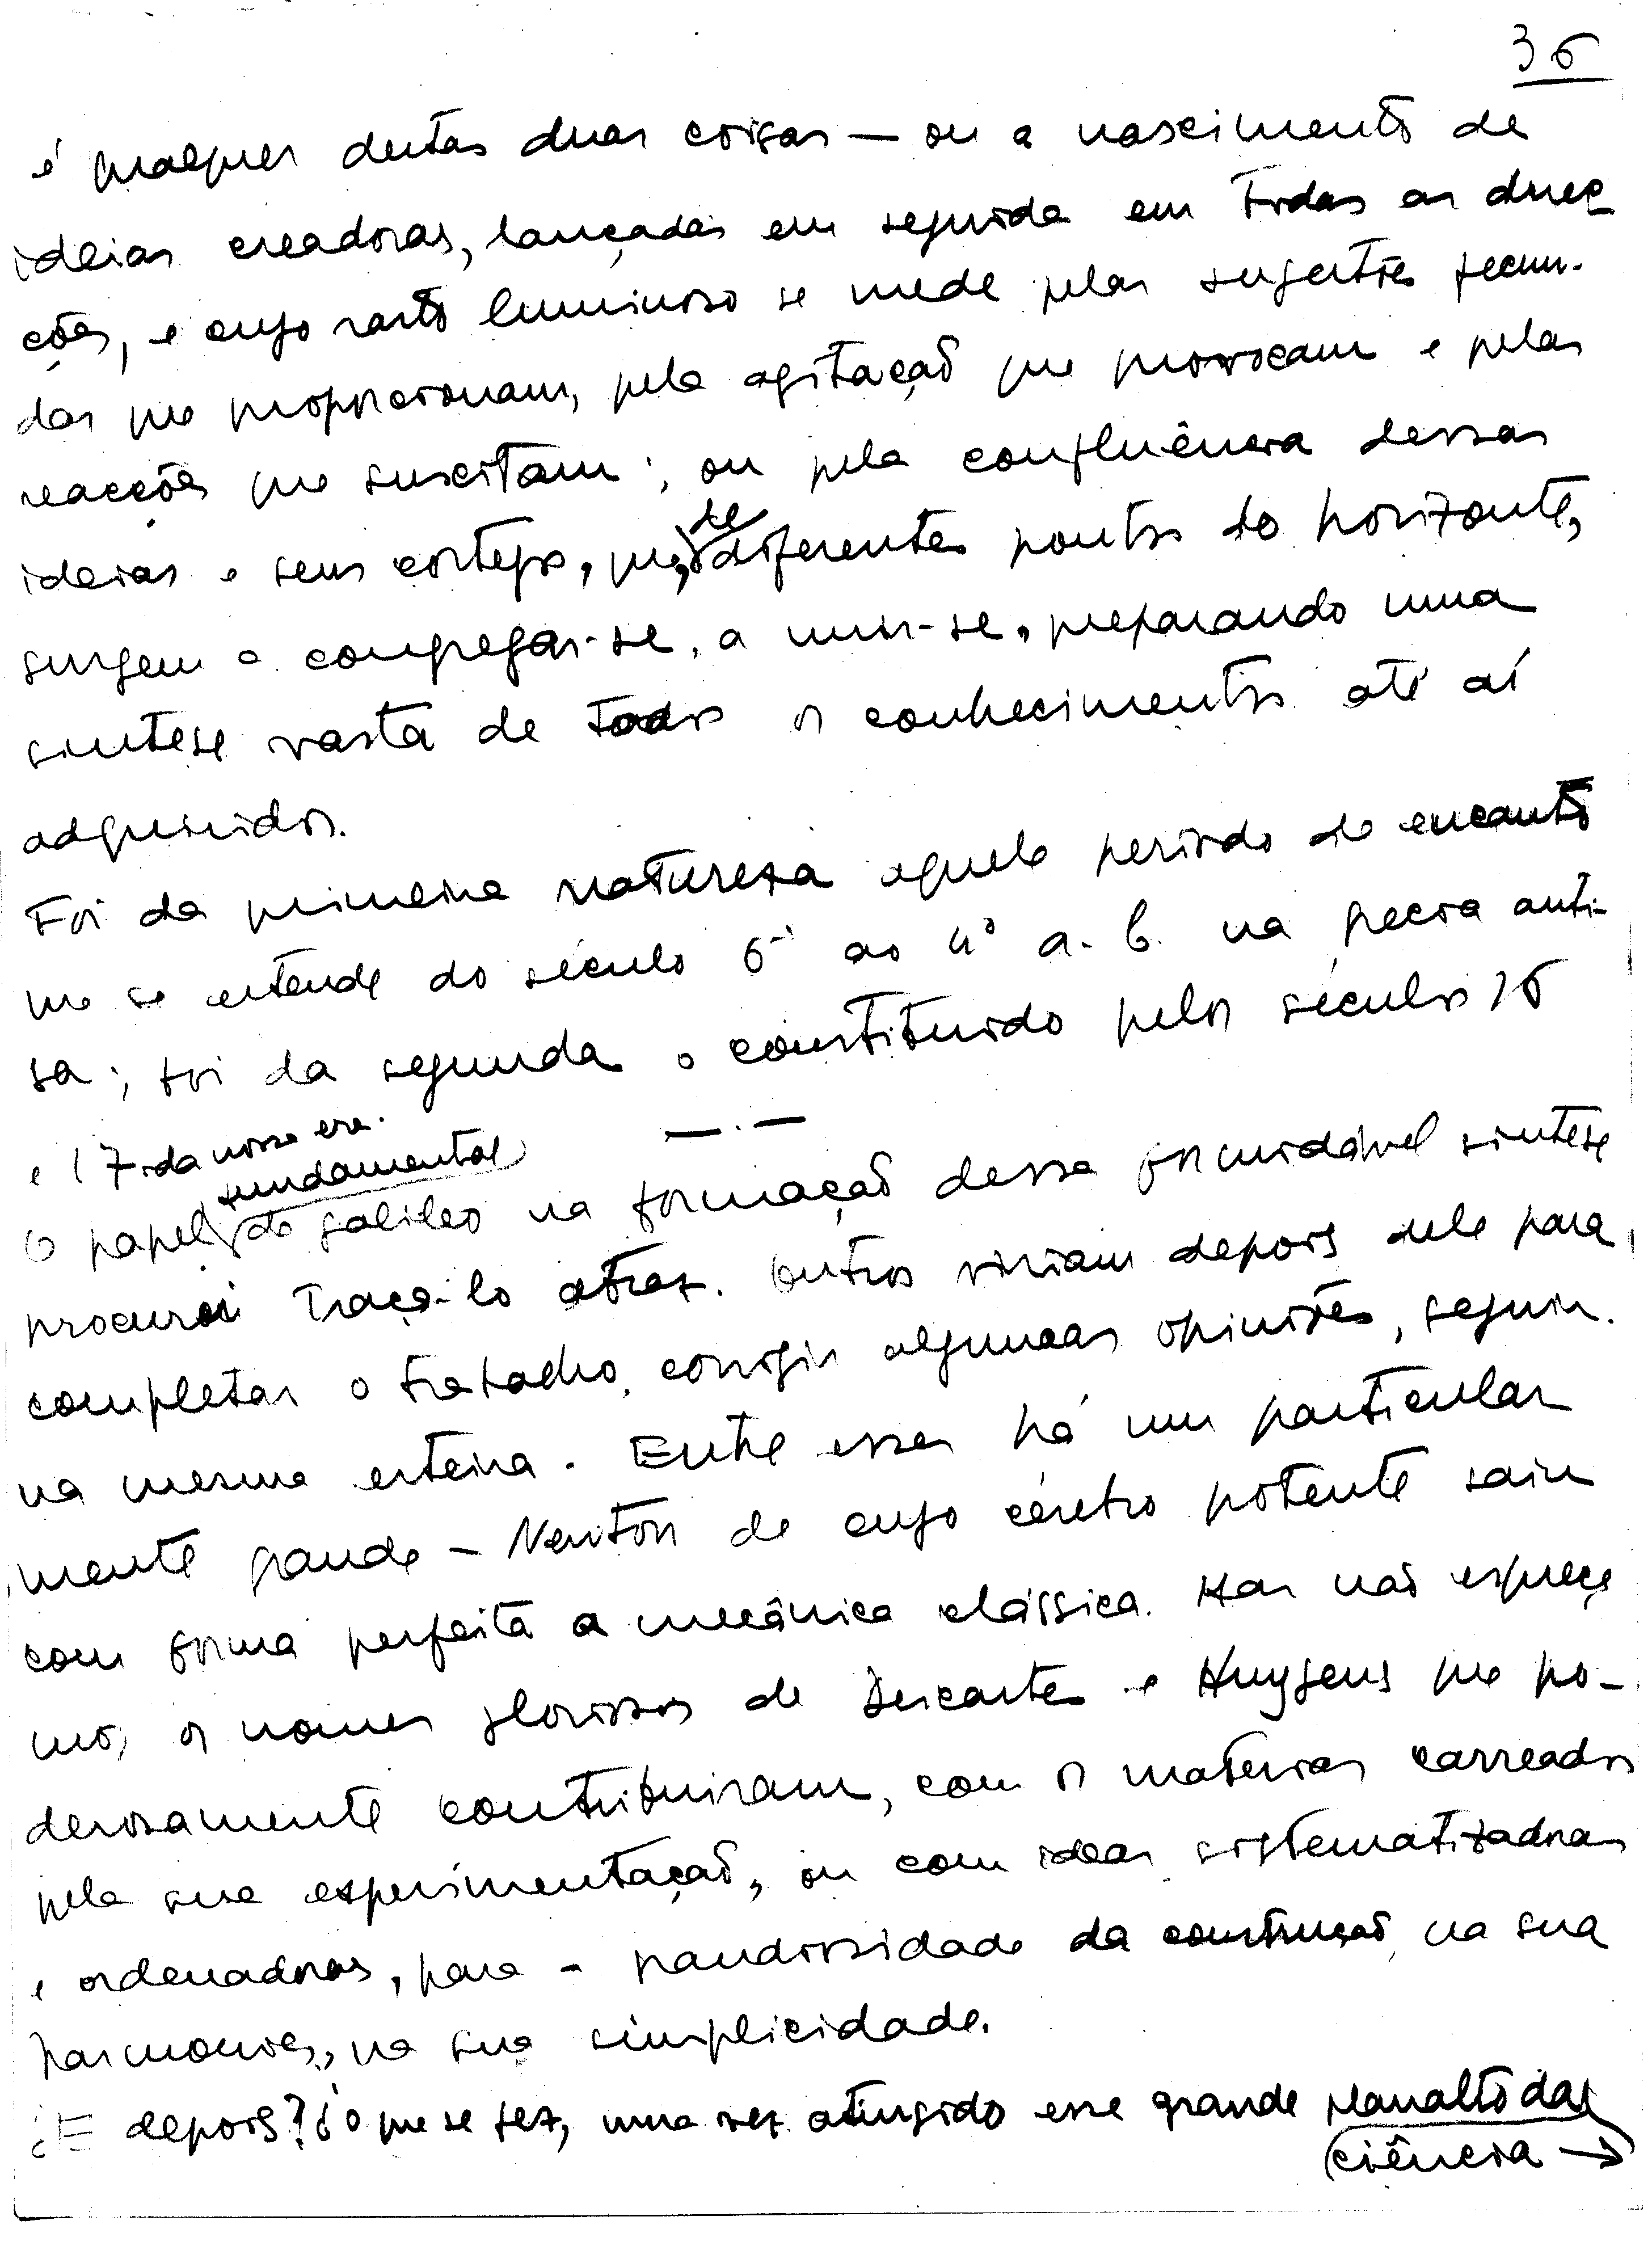 36
é qualquer destas duas coisas — ou o nascimento de
ideias creadoras, lançadas em seguida em todas as direc
ções, e cujo rasto luminoso se mede pelas sugestões fecun-
das que proporcionam, pela agitação que provocam e pelas
reacções que suscitam; ou pela confluência dessas
ideias e seus cortejos, que, de diferentes pontos do horizonte,
surgem a congregar-se, a unir-se, preparando uma
sintese vasta de todos os conhecimentos até aí
adquiridos.
Foi da primeira natureza aquele periodo de encanto
que se estende do século 6º ao 4º a. C. na Grecia anti-
ga; foi da segunda o constituido pelos séculos 16
e 17 da nossa era.
O papel fundamental de Galileo na formação dessa formidável sintese
procurei traça-lo atraz. Outros viriam depois dele para
completar o trabalho, corrigir algumas opiniões, seguir
na mesma esteira. Entre esses há um particular
mente grande — Newton de cujo cérebro potente saiu
com forma perfeita a mecânica clássica. Mas não esqueça
mos, os nomes gloriosos de Descartes e Huygens que po-
derosamente contribuiram, com os materiais carreados
pela sua experimentação, ou com ideas sistematizadoras
e ordenadoras, para a grandiosidade da construção, na sua
harmonia, na sua simplicidade.
¿E depois? ¿o que se fez, uma vez atingido esse grande planalto da
ciência →